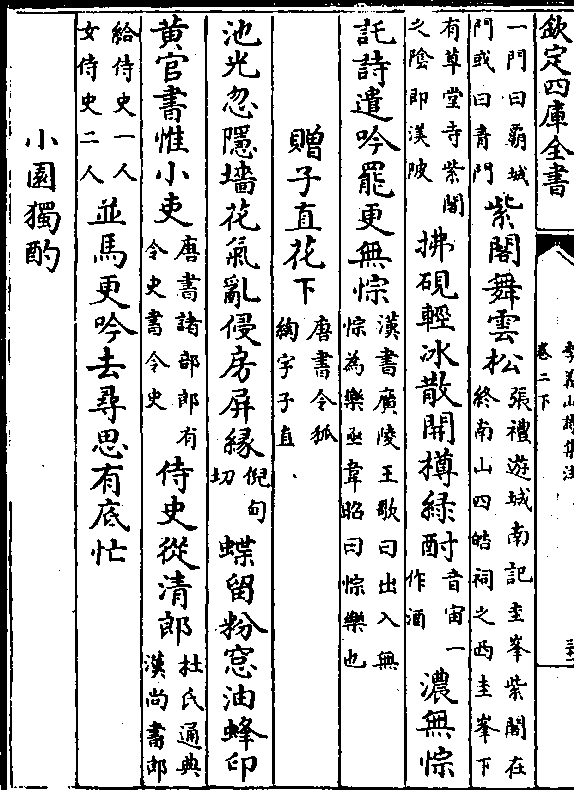 欽定四庫全書
卷二下
一門曰霸城
門或曰青門
紫閣舞雲松
張禮遊城南記圭峯紫閣在
終南山四皓祠之西圭峯下
有草堂寺紫閣
之陰即漢陂
拂硯輕冰散開樽綠酎
音宙一
作酒
濃無悰
託詩遣吟罷更無悰
漢書廣陵王歌曰出入無
悰為樂亟韋昭曰悰樂也
贈子直花下
唐書令狐
綯字子直
池光忽隱墻花氣亂侵房屏緣
倪句
切
蝶留粉窓油蜂印
黄官書惟小吏
唐書諸部郎有
令史書令史
侍史從清郎
杜氏通典
漢尚書郎
給侍史一人
女侍史二人
並馬更吟去尋思有底忙
小園獨酌